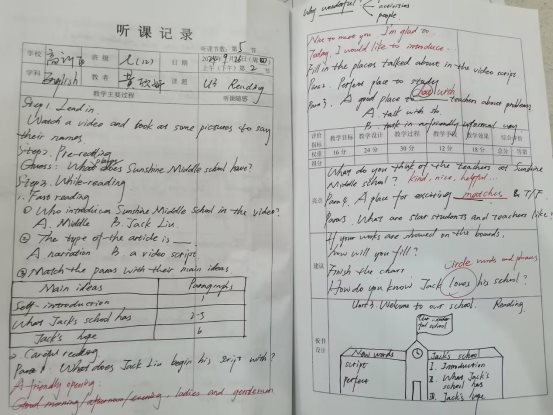 听课记录
听课节数: 第 5 节
学校 班级 2(12) 日期 2024年9月26日(第四)
上午(下午)第2节
学科 English 教者 黄 课题 U3 Reading
教学主要过程 听课随感
Step 1. Lead in
Watch a video and look at some pictures to say
their names
Step 2. Pre-reading
Guess: What does Sunshine Middle school have?
Step 3. While-reading
1. Fast reading
① Who introduces Sunshine Middle School in the video?
A. Middle B. Jack Liu.
② The type of the article is __
A narration B. a video script
③ Match the paras with their main ideas
Main ideas Paragraphs
Self-introduction 1
What Jack's school has 2-5
Jack's hope 6
2. Careful reading
Para 1. What does Jack Liu begin his script with?
A friendly opening:
Good morning/afternoon/evening, ladies and gentlemen
Why wonderful?
activities
people
Nice to meet you I'm glad to...
Today, I would like to introduce...
Fill in the places talked about in the video script
Para 2. Perfect place to study
chat with
Para 3. A good place to teachers about problems
A. talk with to
B. talk in a friendly informal way
评价指标 教学目标 教学设计 教学过程 教学手段 教学效果 综合评价
权重 16分 24分 30分 12分 18分 总分 等第
得分
What do you think of the teachers at Sunshine
Middle school? kind, nice, helpful...
Para 4. A place for exciting matches & T/F
Para 5. What are star students and teachers like?
建议
If your works are showed on the boards,
how will you fill?
Finish the chart
circle words and phrases
How do you know Jack loves his school?
板书设计
Unit 3. Welcome to our school. Reading.
New words
script
perfect
Jack's school
1. Introduction
2. What Jack's
school has
3. Jack's hope